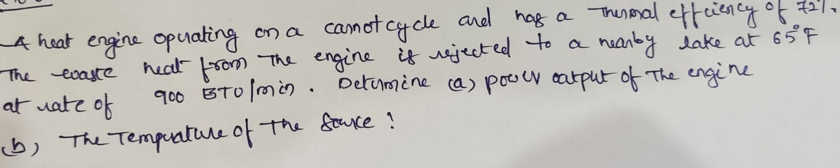 A heat engine opuating on a carnot cycle and has a Thermal effciency of 72%.
The waste heat from The engine is rejected to a nearby lake at 65°F
at rate of 900 BTU/min. Determine (a) power output of The engine
(b) The Tempuature of The Source?